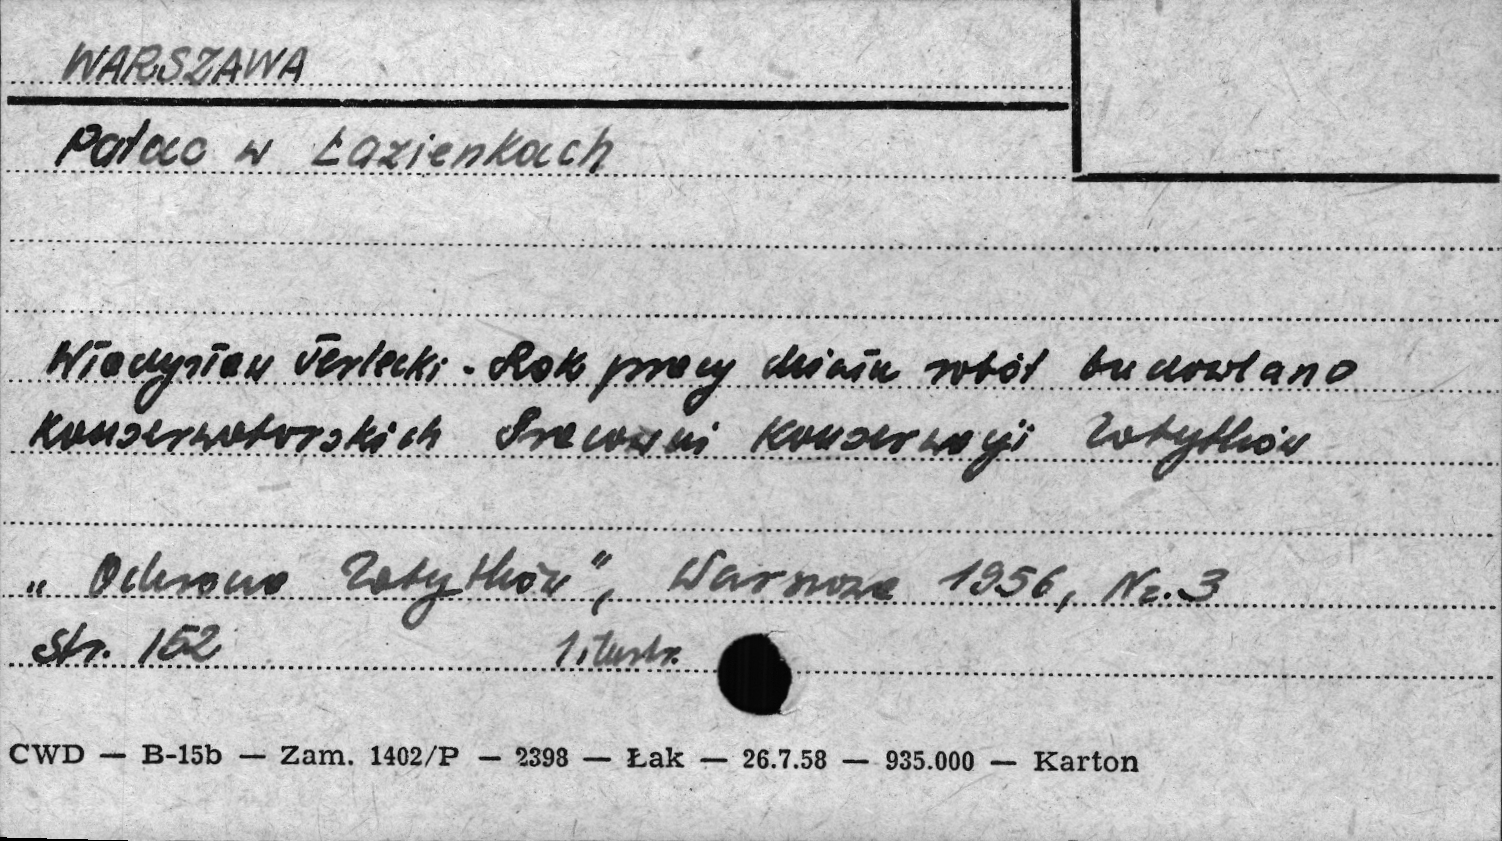 WARSZAWA
Pałac w Łazienkach
Władysław Terlecki. Rok pracy działu robót budowlano
Konserwatorskich Pracowni Konserwacji Zabytków
„Ochrona Zabytków", Warszawa 1956, Nr. 3
str. 152 1 ilustr.
CWD — B-15b — Zam. 1402/P — 2398 — Łak — 26.7.58 — 935.000 — Karton